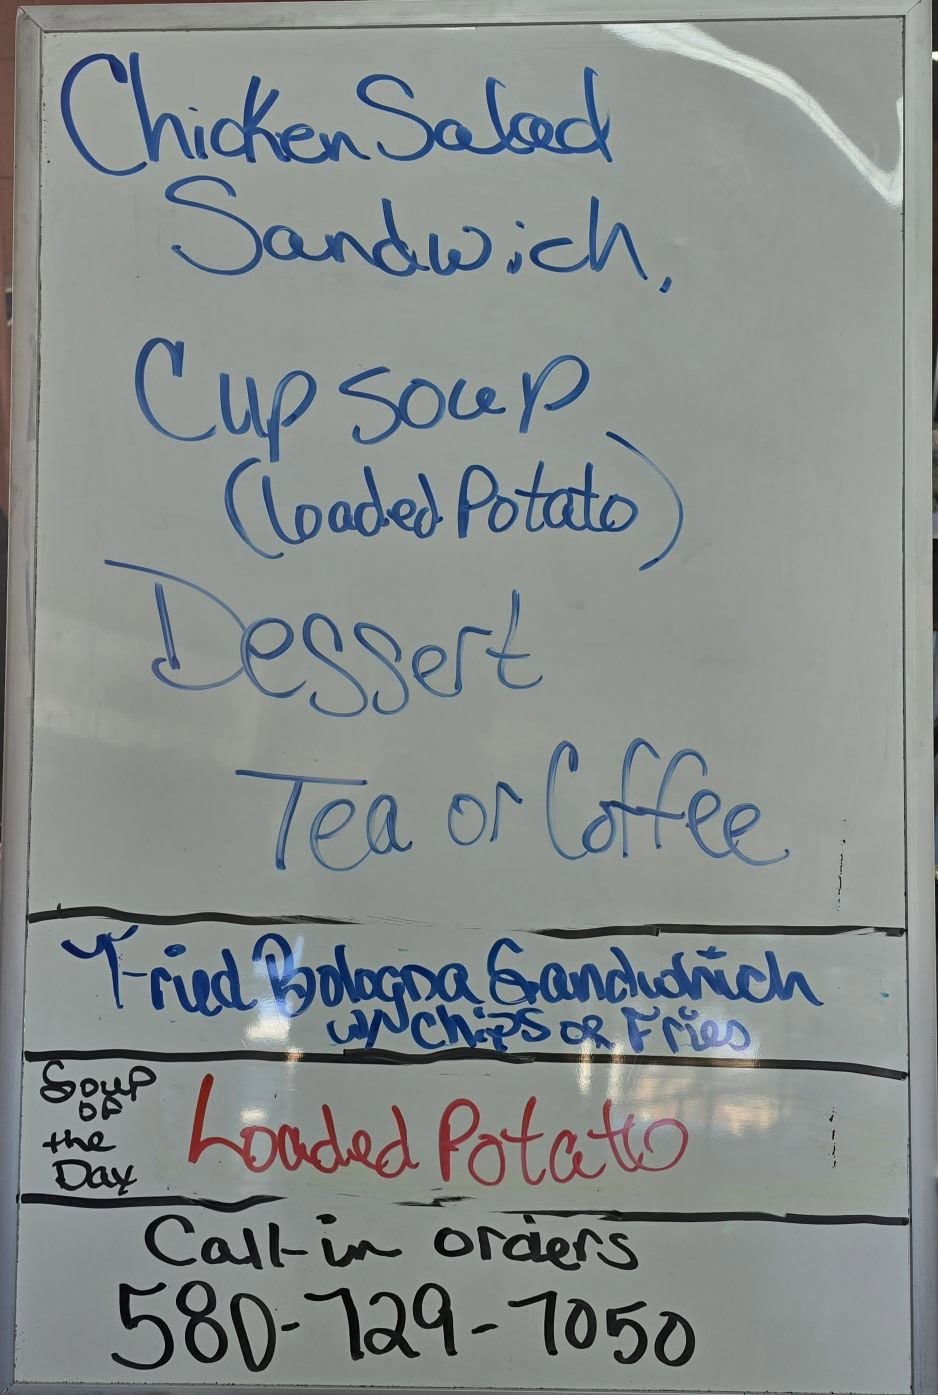 Chicken Salad
Sandwich,
Cup soup
(loaded Potato)
Dessert
Tea or Coffee
Fried Bologna Sandwhich
w/ Chips or Fries
Soup
of
the
Day
Loaded Potato
Call-in orders
580-729-7050